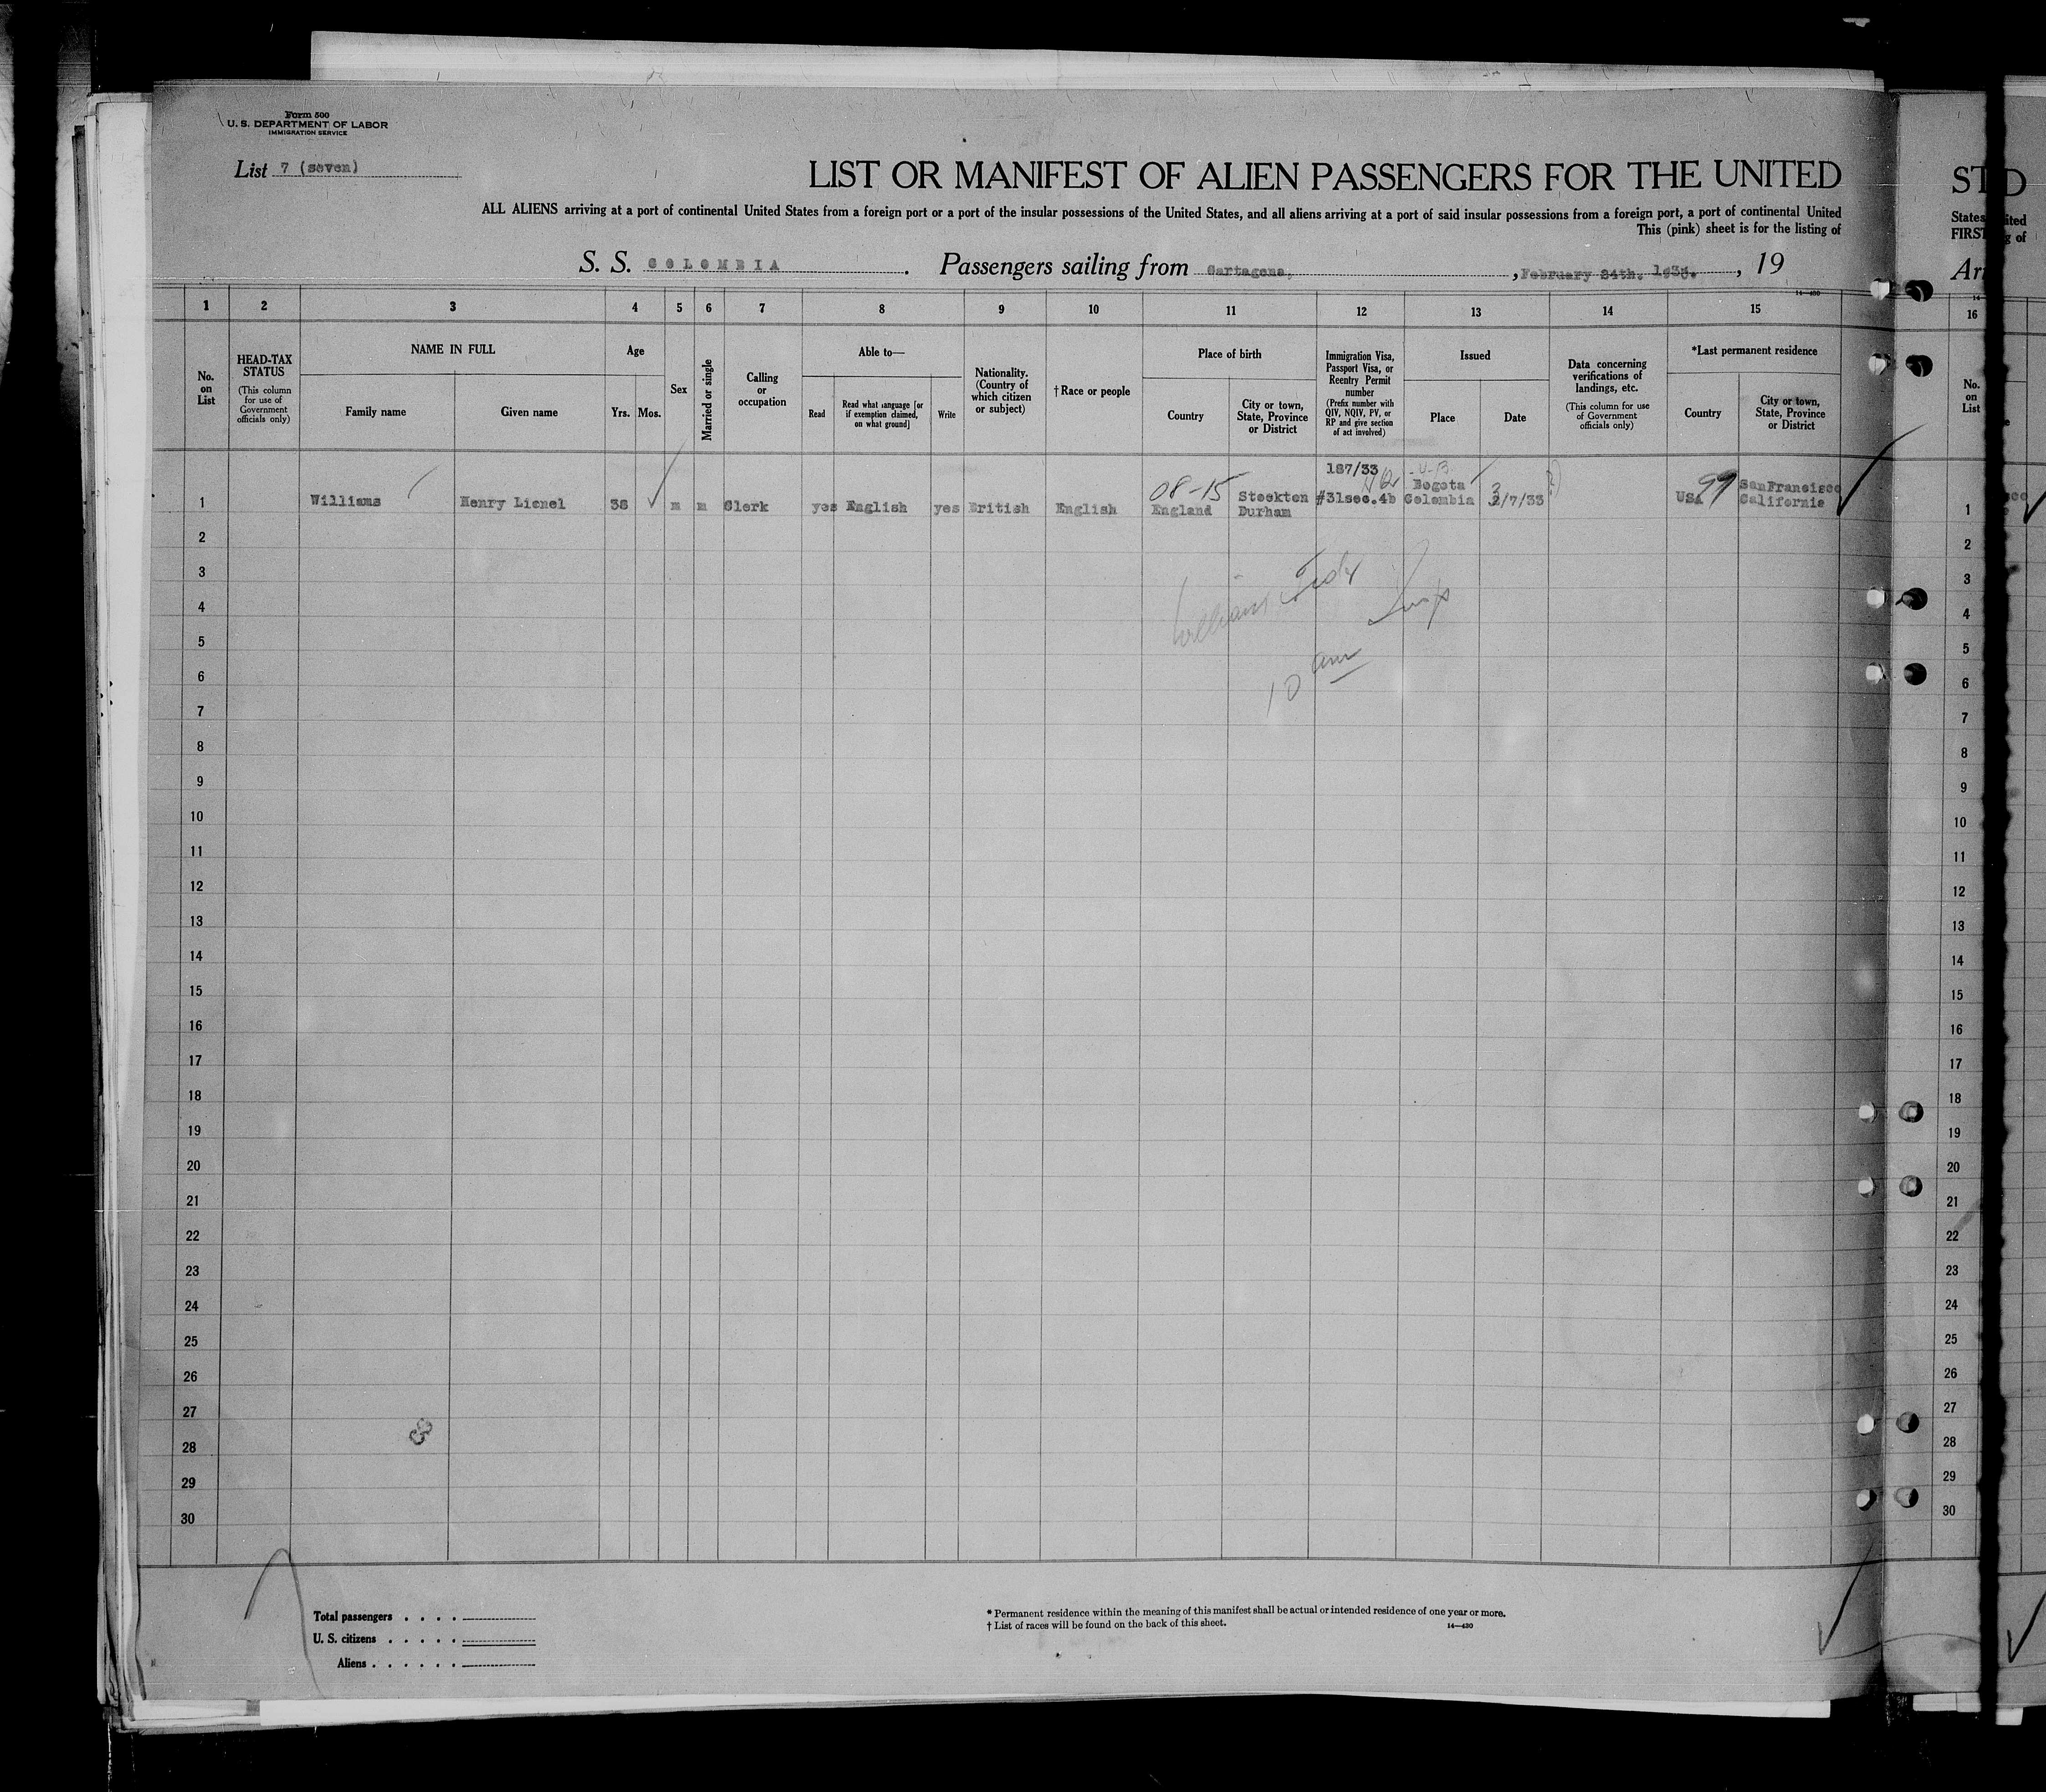 Form 500
U. S. DEPARTMENT OF LABOR
IMMIGRATION SERVICE
List 7 (seven)
LIST OR MANIFEST OF ALIEN PASSENGERS FOR THE UNITED
ALL ALIENS arriving at a port of continental United States from a foreign port or a port of the insular possessions of the United States, and all aliens arriving at a port of said insular possessions from a foreign port, a port of continental United
This (pink) sheet is for the listing of
S. S. COLOMBIA. Passengers sailing from Cartagena, , February 24th, 1933. , 19
1 2 3 4 5 6 7 8 9 10 11 12 13 14 15
No. on List
HEAD-TAX STATUS
(This column for use of Government officials only)
NAME IN FULL
Family name
Given name
Age
Yrs.
Mos.
Sex
Married or single
Calling or occupation
Able to—
Read
Read what language [or if exemption claimed, on what ground]
Write
Nationality. (Country of which citizen or subject)
†Race or people
Place of birth
Country
City or town, State, Province or District
Immigration Visa, Passport Visa, or Reentry Permit number
(Prefix number with QIV, NQIV, PV, or RP and give section of act involved)
Issued
Place
Date
Data concerning verifications of landings, etc.
(This column for use of Government officials only)
*Last permanent residence
Country
City or town, State, Province or District
14—430
1 Williams Henry Lionel 38 m m Clerk yes English yes British English 08-15 England Stockton Durham 187/33 #31sec.4b Bogota Colombia 2/7/33 USA 99 SanFrancisco California
2
3
4
5
6
7
8
9
10
11
12
13
14
15
16
17
18
19
20
21
22
23
24
25
26
27
28
29
30
Williams
10 am
Total passengers
U. S. citizens
Aliens
* Permanent residence within the meaning of this manifest shall be actual or intended residence of one year or more.
† List of races will be found on the back of this sheet.
14—430
ST D
States ited
FIRST g of
Arr
16
No. on List
1
2
3
4
5
6
7
8
9
10
11
12
13
14
15
16
17
18
19
20
21
22
23
24
25
26
27
28
29
30